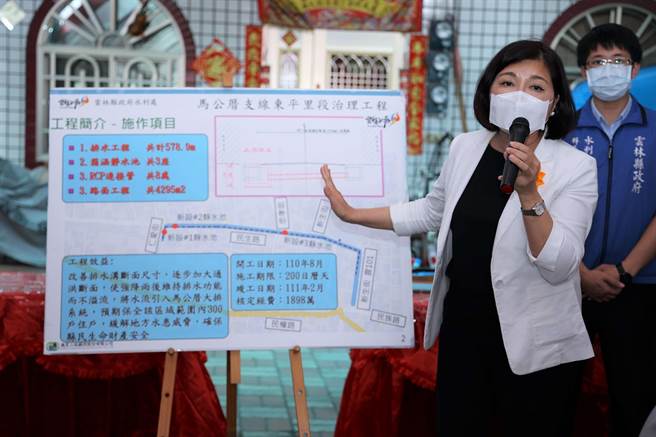 雲林縣政府水利處
馬公厝支線東平里段治理工程
工程簡介 - 施作項目
1. 排水工程 共計578.0m
2. 箱涵靜水池 共3座
3. RCP連接管 共8處
3. 路面工程 共4295m2
新設#2靜水池
新設#1靜水池
民生路
新設#3靜水池
工程效益：
改善排水溝斷面尺寸，逐步加大通
洪斷面，使強降雨後維持排水功能
而不溢流，將水流引入馬公厝大排
系統，預期保全該區域範圍內300
戶住戶，緩解地方水患威脅，確保
縣民生命財產安全
開工日期：110年8月
施工期限：200日曆天
竣工日期：111年2月
核定經費：1898萬
民權路
民族路
2
雲林縣政府
水利